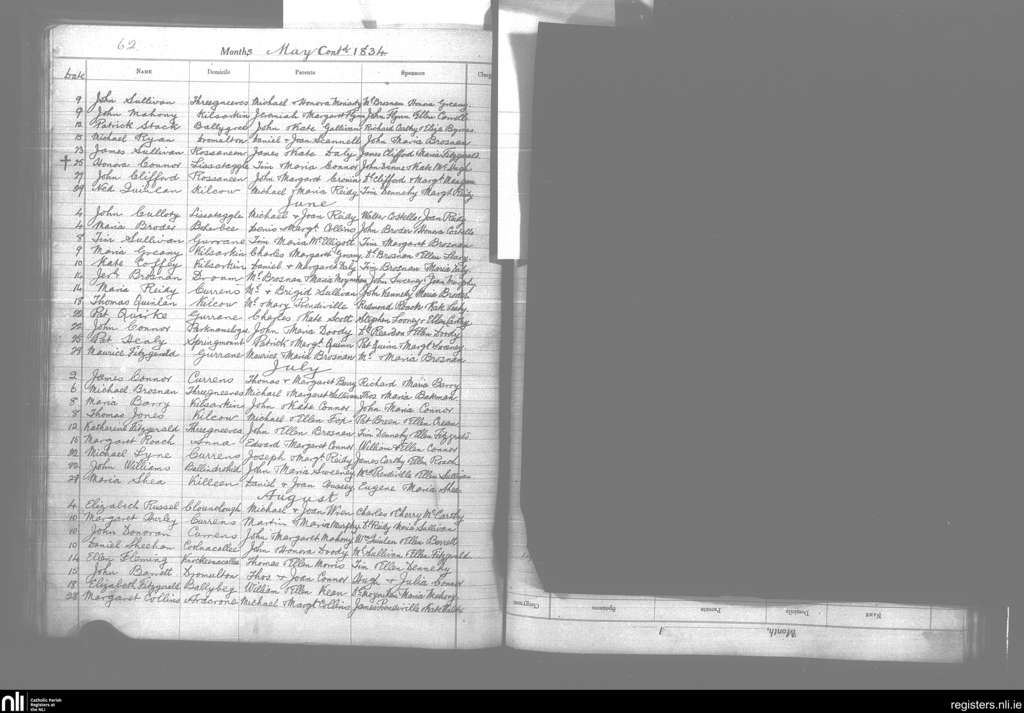 62
Months May Contd 1834
Date Name Domicile Parents Sponsor
9 John Sullivan Threegneeves Michael & Honora Moriarty Ml Brosnan Honora Greany
9 John Mahony Kilsarkin Jeremiah & Margaret Flynn John Flynn Ellen Connell
12 Patrick Stack Ballygree John & Kate Gallivan Richard Carthy & Eliza Byrnes
13 Michael Ryan Dromulton Daniel & Joan Scannell John Maria Brosnan
23 James Sullivan Rossanean James & Kate Daly James Clifford Maria Fitzgerald
† 25 Honora Connor Lissataggle Tim & Maria Connor John & Kate McHugh
27 John Clifford Rossaneen John Margaret Cronin Clifford & Margt
29 Ned Quinlan Kilcow Michael & Maria Reidy Tim Dennehy Margt Reidy
June
4 John Culloty Lissataggle Michael & Joan Reidy Walter Costello Joan Reidy
4 Maria Broder Denis & Margt Collins John Broder Honora Costello
8 Tim Sullivan Gurrane Tim Maria McElligott Tim Margaret Brosnan
9 Maria Greany Kilsarkin Charles Margaret Greany Dl Brosnan & Ellen Leary
10 Kate Coffey Kilsarkin Daniel & Margaret Daly Tim Brosnan Maria Daly
14 Jerh Brosnan Droum Ml Brosnan & Maria Moynihan John Sweeney Joan Murphy
14 Maria Reidy Currens Ml & Brigid Sullivan John Kennehy Maria Broder
18 Thomas Quinlan Kilcow Ml & Mary Prendiville Redmond Roach Kate Leahy
20 Pat Quirke Gurrane Charles Kate Scott Stephen Looney & Ellen Carthy
22 John Connor Parknanulogu John Maria Doody Reardon & Ellen Doody
25 Pat Healy Springmount Patrick & Margt Quinn Pat Quinn & Margt Sweeney
29 Maurice Fitzgerald Gurrane Maurice & Maria Brosnan Ml & Maria Brosnan
July
2 James Connor Currens Thomas & Margaret Barry Richard Maria Barry
6 Michael Brosnan Threegneeves Michael Margaret Sullivan Thos Maria Bateman
8 Maria Barry Kilsarkin John & Kate Connor John Maria Connor
8 Thomas Jones Kilcow Michael & Ellen Fox Pat Breen & Ellen Crean
12 Katherine Fitzgerald Threegneeves John & Ellen Brosnan Tim Dennehy & Ellen Fitzgerald
15 Margaret Roach Anna Edward Margaret Connor William & Ellen Connor
22 Michael Lyne Currens Joseph & Margt Reidy James Carthy Ellen Roach
22 John Williams John & Maria Sweeney Wm Prendiville & Ellen Sullivan
29 Maria Shea Killeen David & Joan Hussey Eugene Maria Shea
August
4 Elizabeth Russel Clounclough Michael & Joan Wren Charles & Cherry McCarthy
10 Margaret Hurley Currens Martin & Maria Murphy Dl Reidy Nora Sullivan
10 John Donovan Currens John Margaret Mahony Wm Quinlan & Ellen Barrett
10 Daniel Sheehan Coolnacallee John & Honora Doody Ml Sullivan & Ellen Fitzgerald
14 Ellen Fleming Knockeenacallee Thomas & Ellen Morris Tim Ellen Dennehy
15 John Barrett Dromulton Thos & Joan Connor Hugh & Julia Connor
18 Elizabeth Fitzgerald Ballybeg William & Ellen Kean Moynihan Maria Mahony
28 Margaret Collins Ardcrone Michael & Margt Collins James Prendiville & Kate
Clergyman Sponsors Parents Domicile Name
Month,
nli Catholic Parish Registers at the NLI
registers.nli.ie